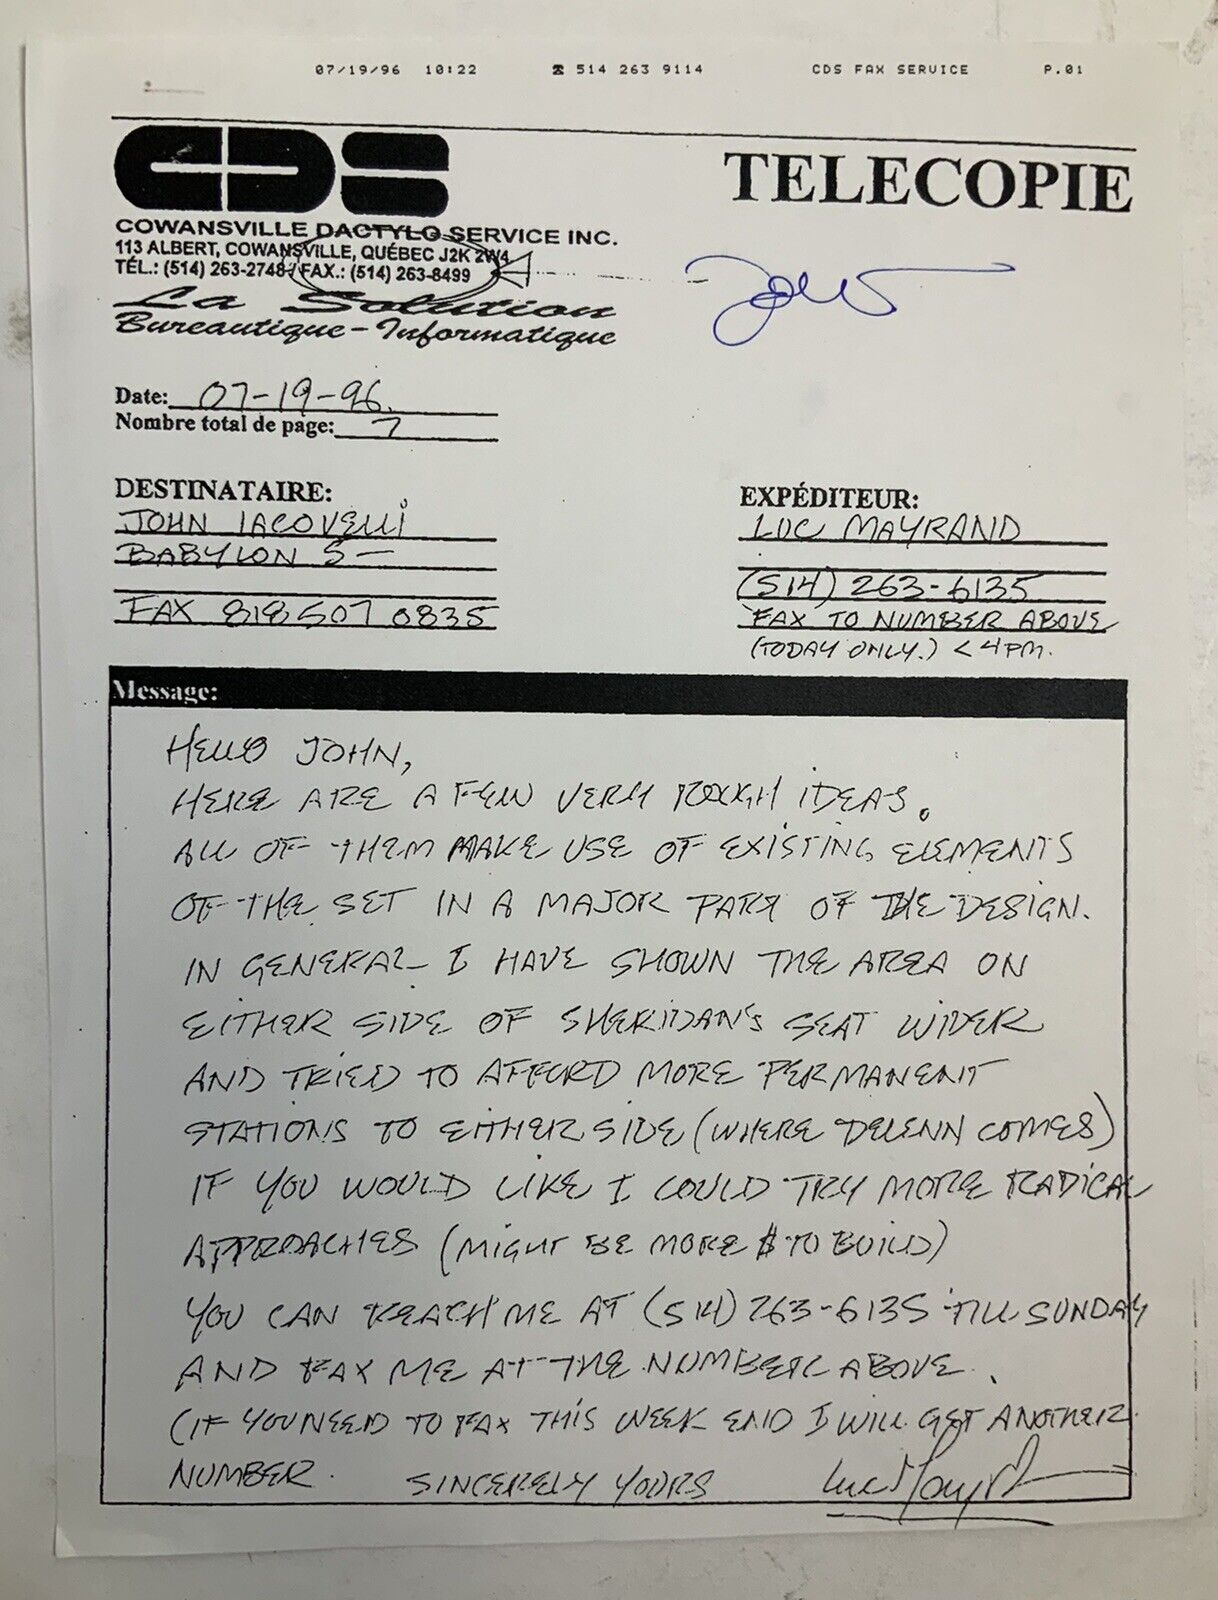 07/19/96 10:22 ☎ 514 263 9114 CDS FAX SERVICE P.01
CDS
TELECOPIE
COWANSVILLE DACTYLO SERVICE INC.
113 ALBERT, COWANSVILLE, QUÉBEC J2K 2W4
TÉL.: (514) 263-2748 / FAX.: (514) 263-8499
La Solution
Bureautique - Informatique
Date: 07-19-96.
Nombre total de page: 7
DESTINATAIRE:
JOHN IACOVELLI
BABYLON 5 —
FAX 818 507 0835
EXPÉDITEUR:
LUC MAYRAND
(514) 263-6135
FAX TO NUMBER ABOVE
(TODAY ONLY.) < 4 PM.
Message:
HELLO JOHN,
HERE ARE A FEW VERY ROUGH IDEAS.
ALL OF THEM MAKE USE OF EXISTING ELEMENTS
OF THE SET IN A MAJOR PART OF THE DESIGN.
IN GENERAL I HAVE SHOWN THE AREA ON
EITHER SIDE OF SHERIDAN'S SEAT WIDER
AND TRIED TO AFFORD MORE PERMANENT
STATIONS TO EITHER SIDE (WHERE DELENN COMES)
IF YOU WOULD LIKE I COULD TRY MORE RADICAL
APPROACHES (MIGHT BE MORE $ TO BUILD)
YOU CAN REACH ME AT (514) 263-6135 TILL SUNDAY
AND FAX ME AT THE NUMBER ABOVE.
(IF YOU NEED TO FAX THIS WEEK END I WILL GET ANOTHER
NUMBER. SINCERELY YOURS Luc Mayrand